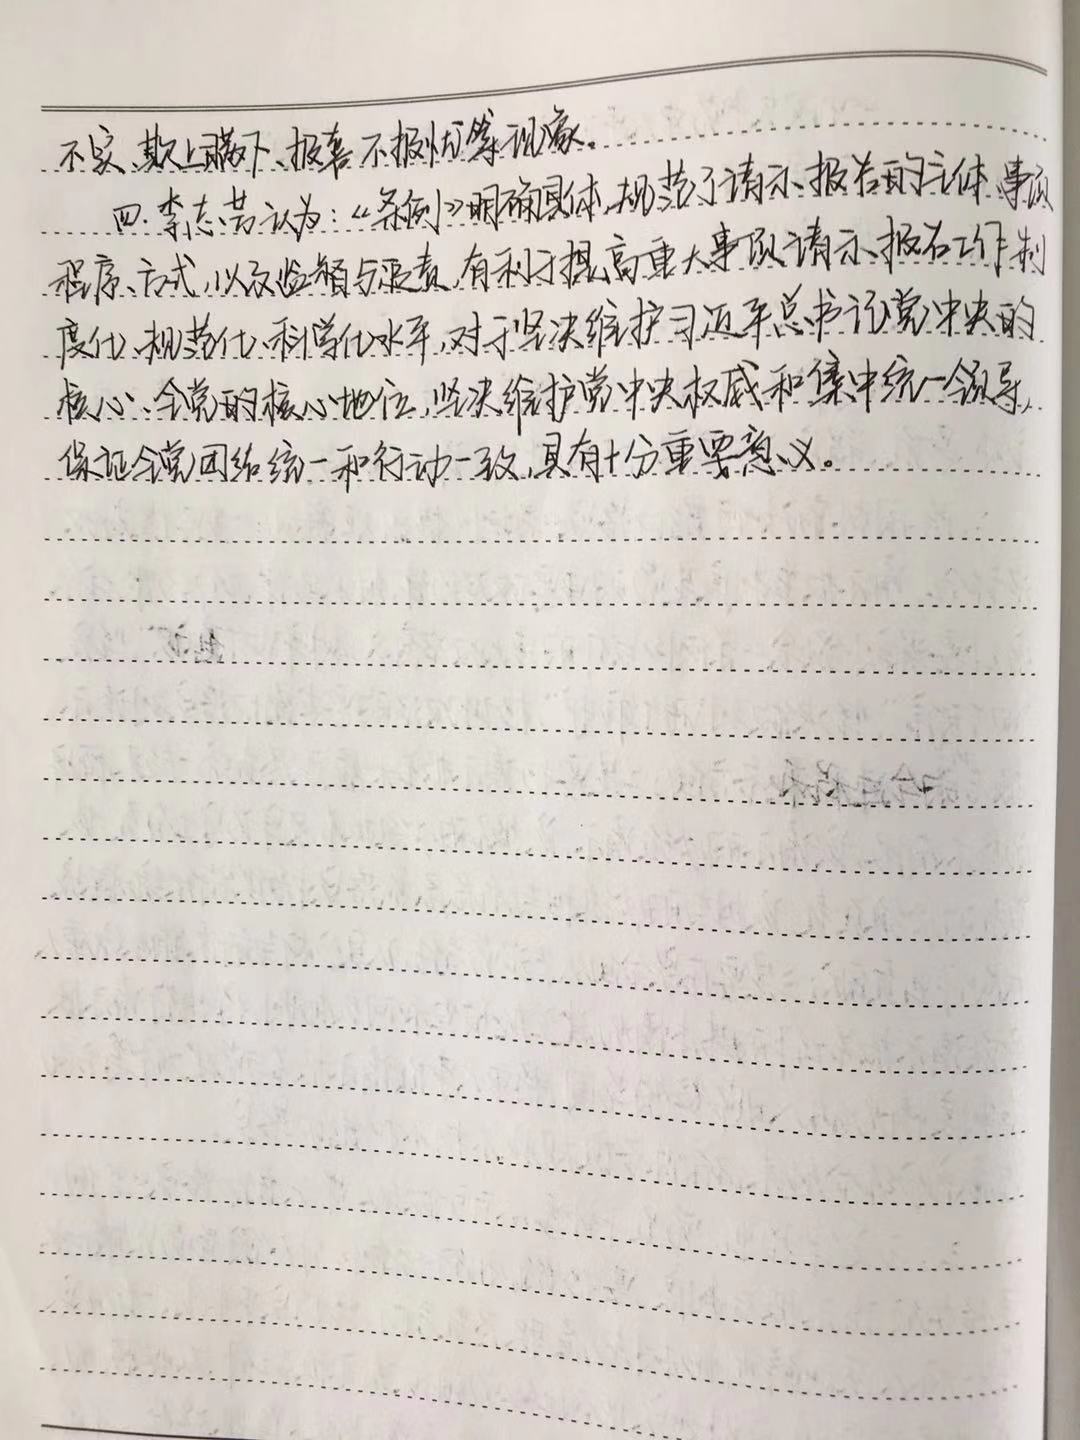 不实、欺上瞒下、报喜不报忧等现象。
四.李志芸认为:《条例》明确具体,规范了请示、报告的主体、事项
程序、方式,以及监督与追责,有利于提高重大事项请示、报告工作制
度化、规范化、科学化水平,对于坚决维护习近平总书记党中央的
核心、全党的核心地位,坚决维护党中央权威和集中统一领导,
保证全党团结统一和行动一致,具有十分重要意义。